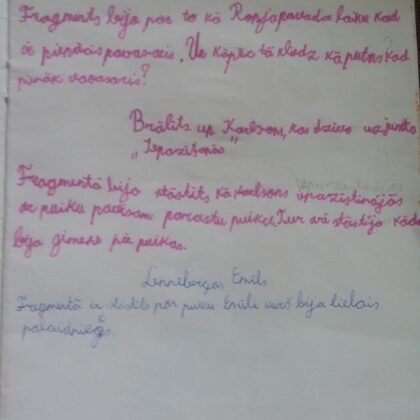 Fragments bija par to kā Ronjapavada laiku kad
ir pienācis pavasaris. Un kāpēc tā kliedz kā putns kad
pienāk pavasaris?
Brālītis un Karlsons, kas dzīvo uz jumta
„Iepazīšanās"
Fragmentā bija stāstīts, kā Karlsons iepazīstinājās
ar puiku pavisam parastu puiku. Tur arī stāstīja kāda
bija ģimene pie puikas.
Lennebergas Emīls
Fragmentā ir stāstīts par puiku Emīlu kurš bija lielais
palaidnieks.